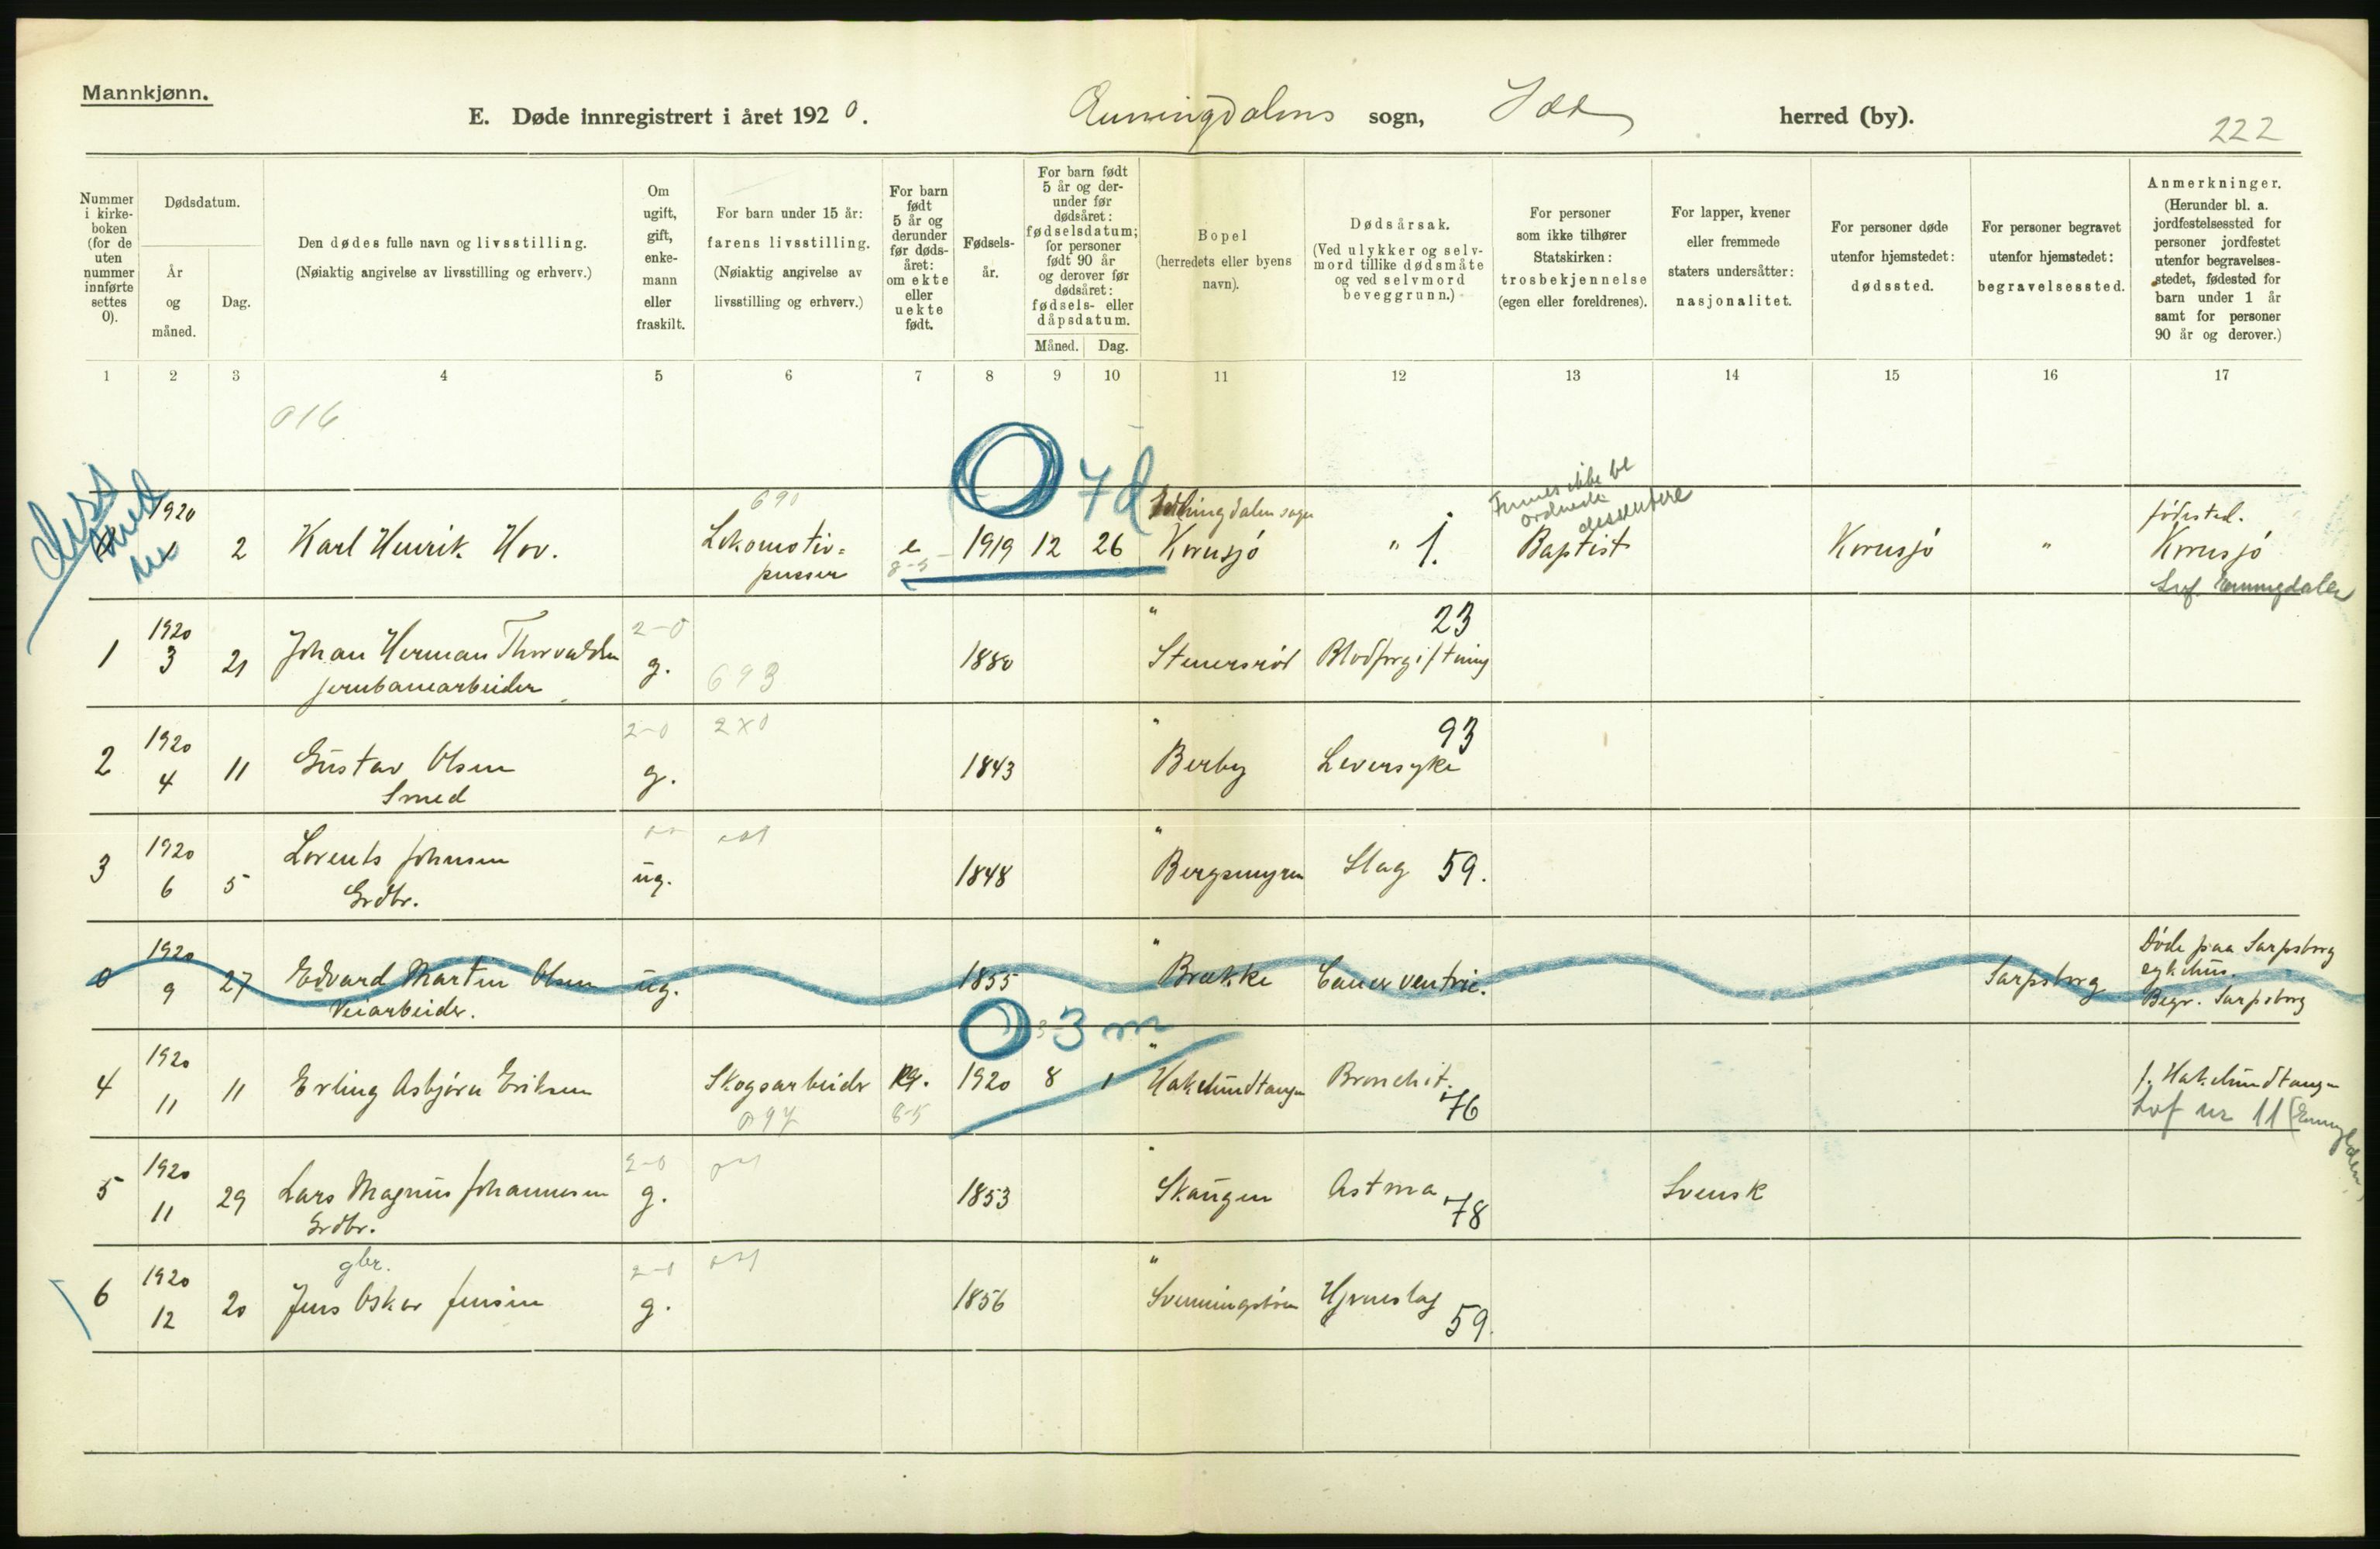 Mannkjønn.
E. Døde innregistrert i året 1920. Enningdalens sogn, Idd herred (by).
222
Nummer i kirkeboken (for de uten nummer innførte settes 0).
Dødsdatum.
År og måned.
Dag.
Den dødes fulle navn og livsstilling.
(Nøiaktig angivelse av livsstilling og erhverv.)
Om ugift, gift, enkemann eller fraskilt.
For barn under 15 år: farens livsstilling.
(Nøiaktig angivelse av livsstilling og erhverv.)
For barn født 5 år og derunder før dødsåret: om ekte eller uekte født.
Fødselsår.
For barn født 5 år og derunder før dødsåret: fødselsdatum; for personer født 90 år og derover før dødsåret: fødsels- eller dåpsdatum.
Måned.
Dag.
Bopel
(herredets eller byens navn).
Dødsårsak.
(Ved ulykker og selvmord tillike dødsmåte og ved selvmord beveggrunn.)
For personer som ikke tilhører Statskirken: trosbekjennelse (egen eller foreldrenes).
For lapper, kvener eller fremmede staters undersåtter: nasjonalitet.
For personer døde utenfor hjemstedet: dødssted.
For personer begravet utenfor hjemstedet: begravelsessted.
Anmerkninger.
(Herunder bl. a. jordfestelsessted for personer jordfestet utenfor begravelsesstedet, fødested for barn under 1 år samt for personer 90 år og derover.)
1 2 3 4 5 6 7 8 9 10 11 12 13 14 15 16 17
016
diss
0 7d
1920 1 2 Karl Henrik Hov. 690 Lokomotivpusser e 8-5 1919 12 26 Kornsjø " 1. Finnes ikke bl ordnede dissentere Baptist Kornsjø " fødested. Kornsjø
Enningdalen
1 1920 3 21 Johan Herman Thorvaldsen jernbanearbeider 2-0 g. 693 1880 " Stenersrød Blodforgiftning 23
2 1920 4 11 Gustav Olsen Smed 2-0 g. 2x0 1843 " Berby Leversyke 93
3 1920 6 5 Lorents Johnsen Grdbr. ug. 1848 " Bergsmyren Slag 59.
0 1920 9 27 Edvard Martin Olsen Veiarbeider. ug. 1855 " Brække Cancer ventric. Sarpsborg Døde paa Sarpsborg sykehus. Begr. Sarpsborg
0 3 m
4 1920 11 11 Erling Asbjørn Eriksen Skogsarbeider 097 8-5 1920 8 1 " Hakelundtangen Bronchit. 76 f. Hakelundtangen
Lvf nr 11
5 1920 11 29 Lars Magnus Johannesen Grdbr. 2-0 g. 1853 " Skaugen Astma 78 Svensk
6 1920 12 20 gbr. Jens Oskar Jensen g. 1856 " Hjerneslag 59.